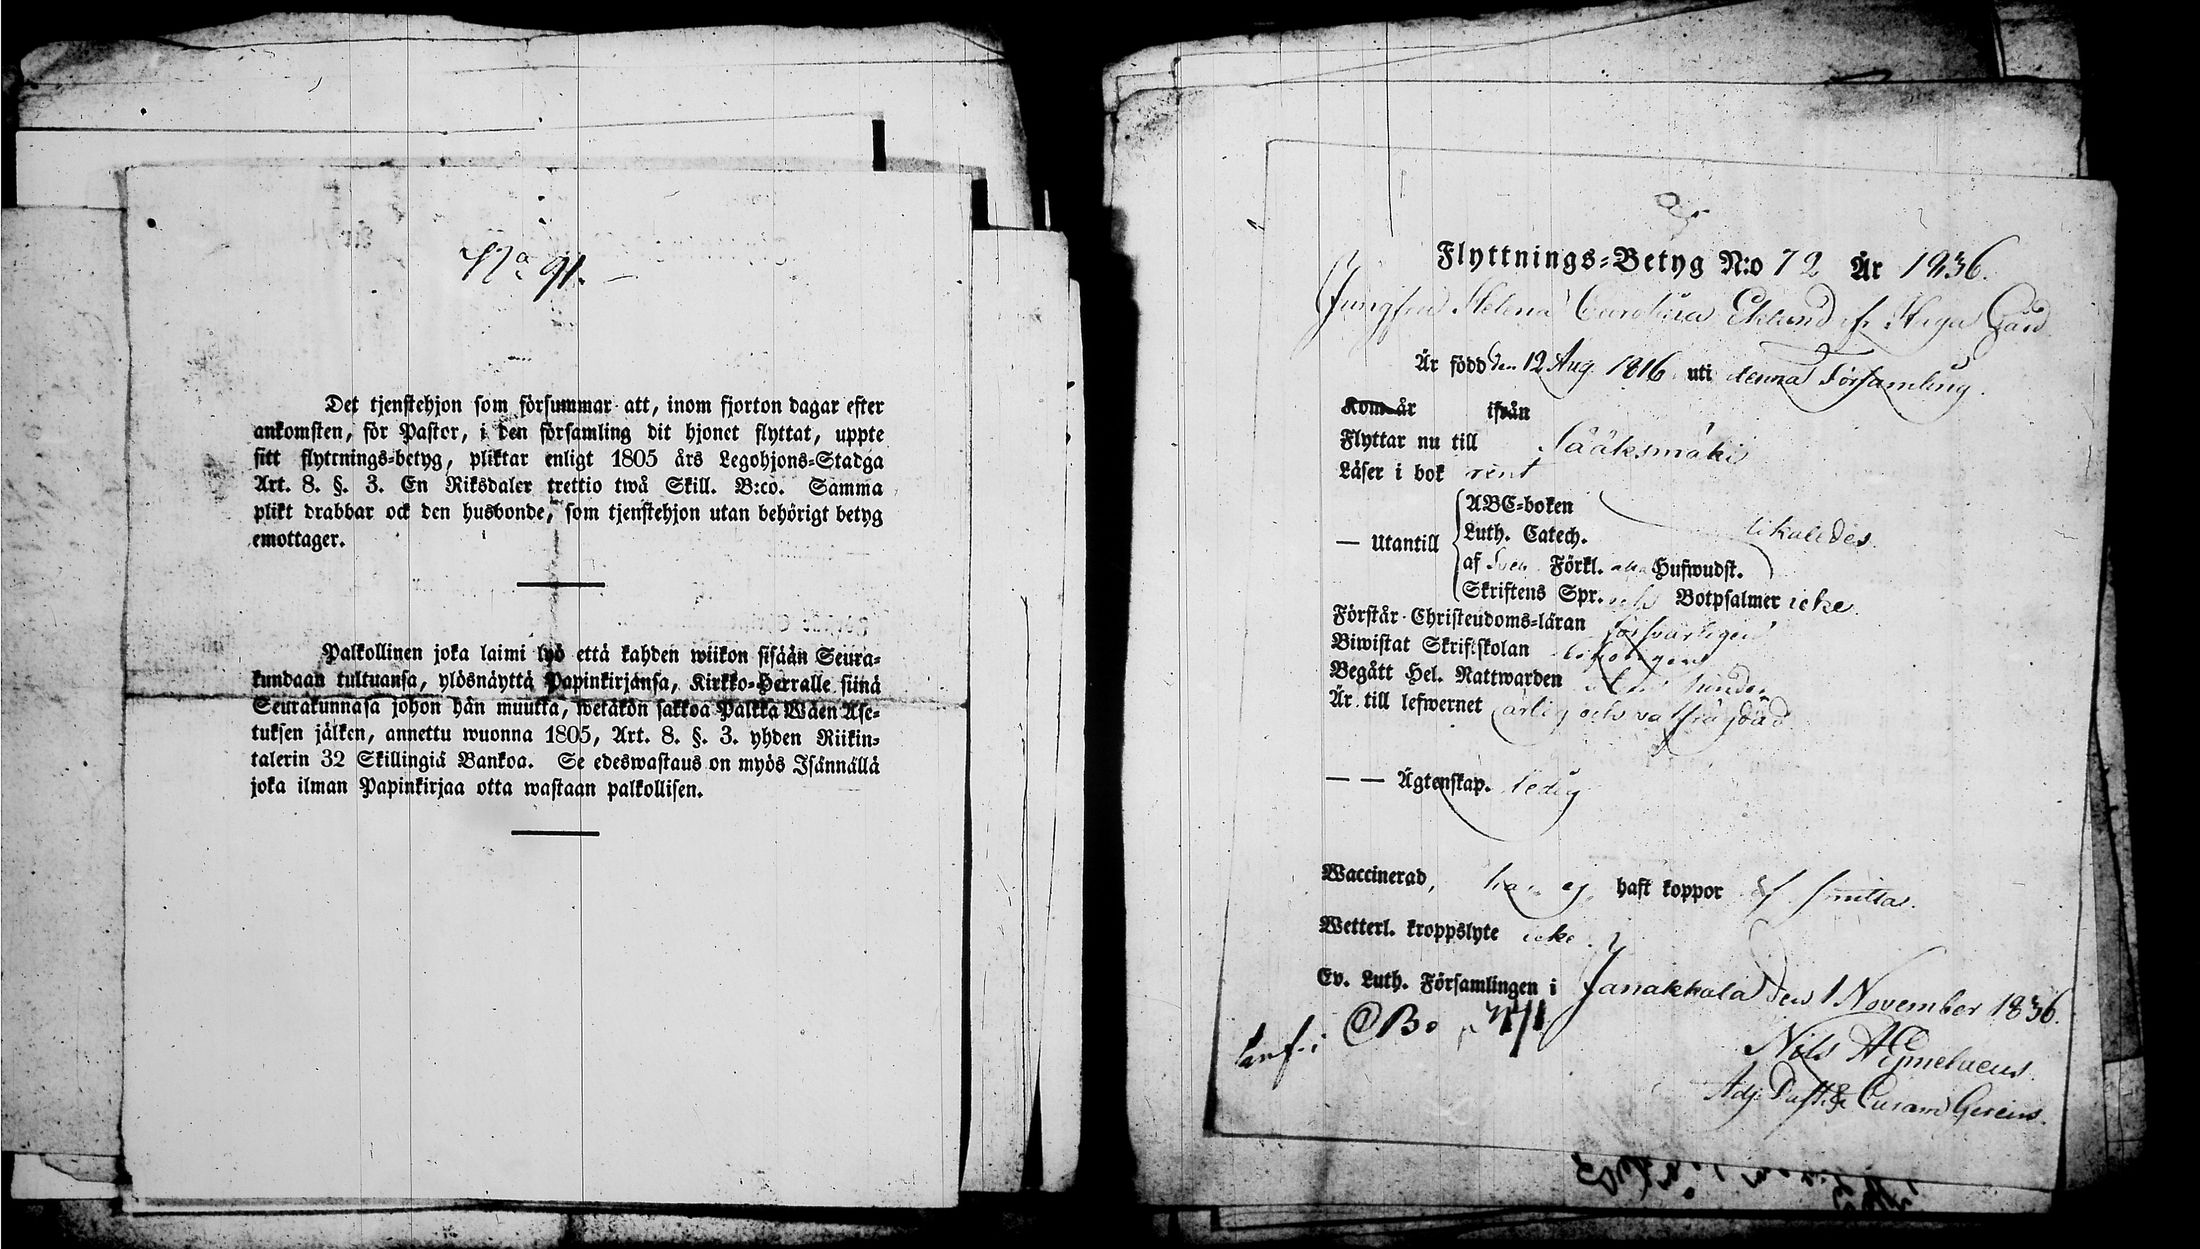 No 91.
Det tjenstehjon som försummar att, inom fjorton dagar efter
ankomsten, för Pastor, i den församling dit hjonet flyttat, uppte
sitt flyttnings-betyg, pliktar enligt 1805 års Legohjons-Stadga
Art. 8. §. 3. En Riksdaler trettio twå Skill. B:co. Samma
plikt drabbar ock den husbonde, som tjenstehjon utan behörigt betyg
emottager.
Palkollinen joka laimi lyö että kahden wiikon sisään Seura-
kundaan tultuansa, ylösnäyttä Papinkirjansa, Kirkko-Herralle siinä
Seurakunnasa johon hän muutta, wetäkön sakkoa Palkka Wäen Ase-
tuksen jälken, annettu wuonna 1805, Art. 8. §. 3. yhden Riikin-
talerin 32 Skillingiä Bankoa. Se edeswastaus on myös Isännällä
joka ilman Papinkirjaa otta wastaan palkollisen.
Flyttnings-Betyg N:o 72 År 1836.
Jungfru Helena Carolina Eklund fr. Haga Gård
Är född den 12 Aug. 1816 uti denna Församling.
Kom år ifrån
Flyttar nu till Sääksmäki
Läser i bok rent
ABE-boken
Luth. Catech. likaledes
— Utantill
af Sven Förkl. Hufwudst.
Skriftens Spr. och Botpsalmer icke.
Förstår Christendoms-läran försvarligen
Biwistat Skriftskolan
Begått Hel. Nattwarden
Är till lefwernet ärlig och välfräjdad
— — Ägtenskap. ledig
Waccinerad, har ej haft koppor af smitta.
Wetterl. kroppslyte icke.
Ev. Luth. Församlingen i Janakkala den 1 November 1836.
Nils Aejmelaeus
Adj. Past. & Curam Gerens.